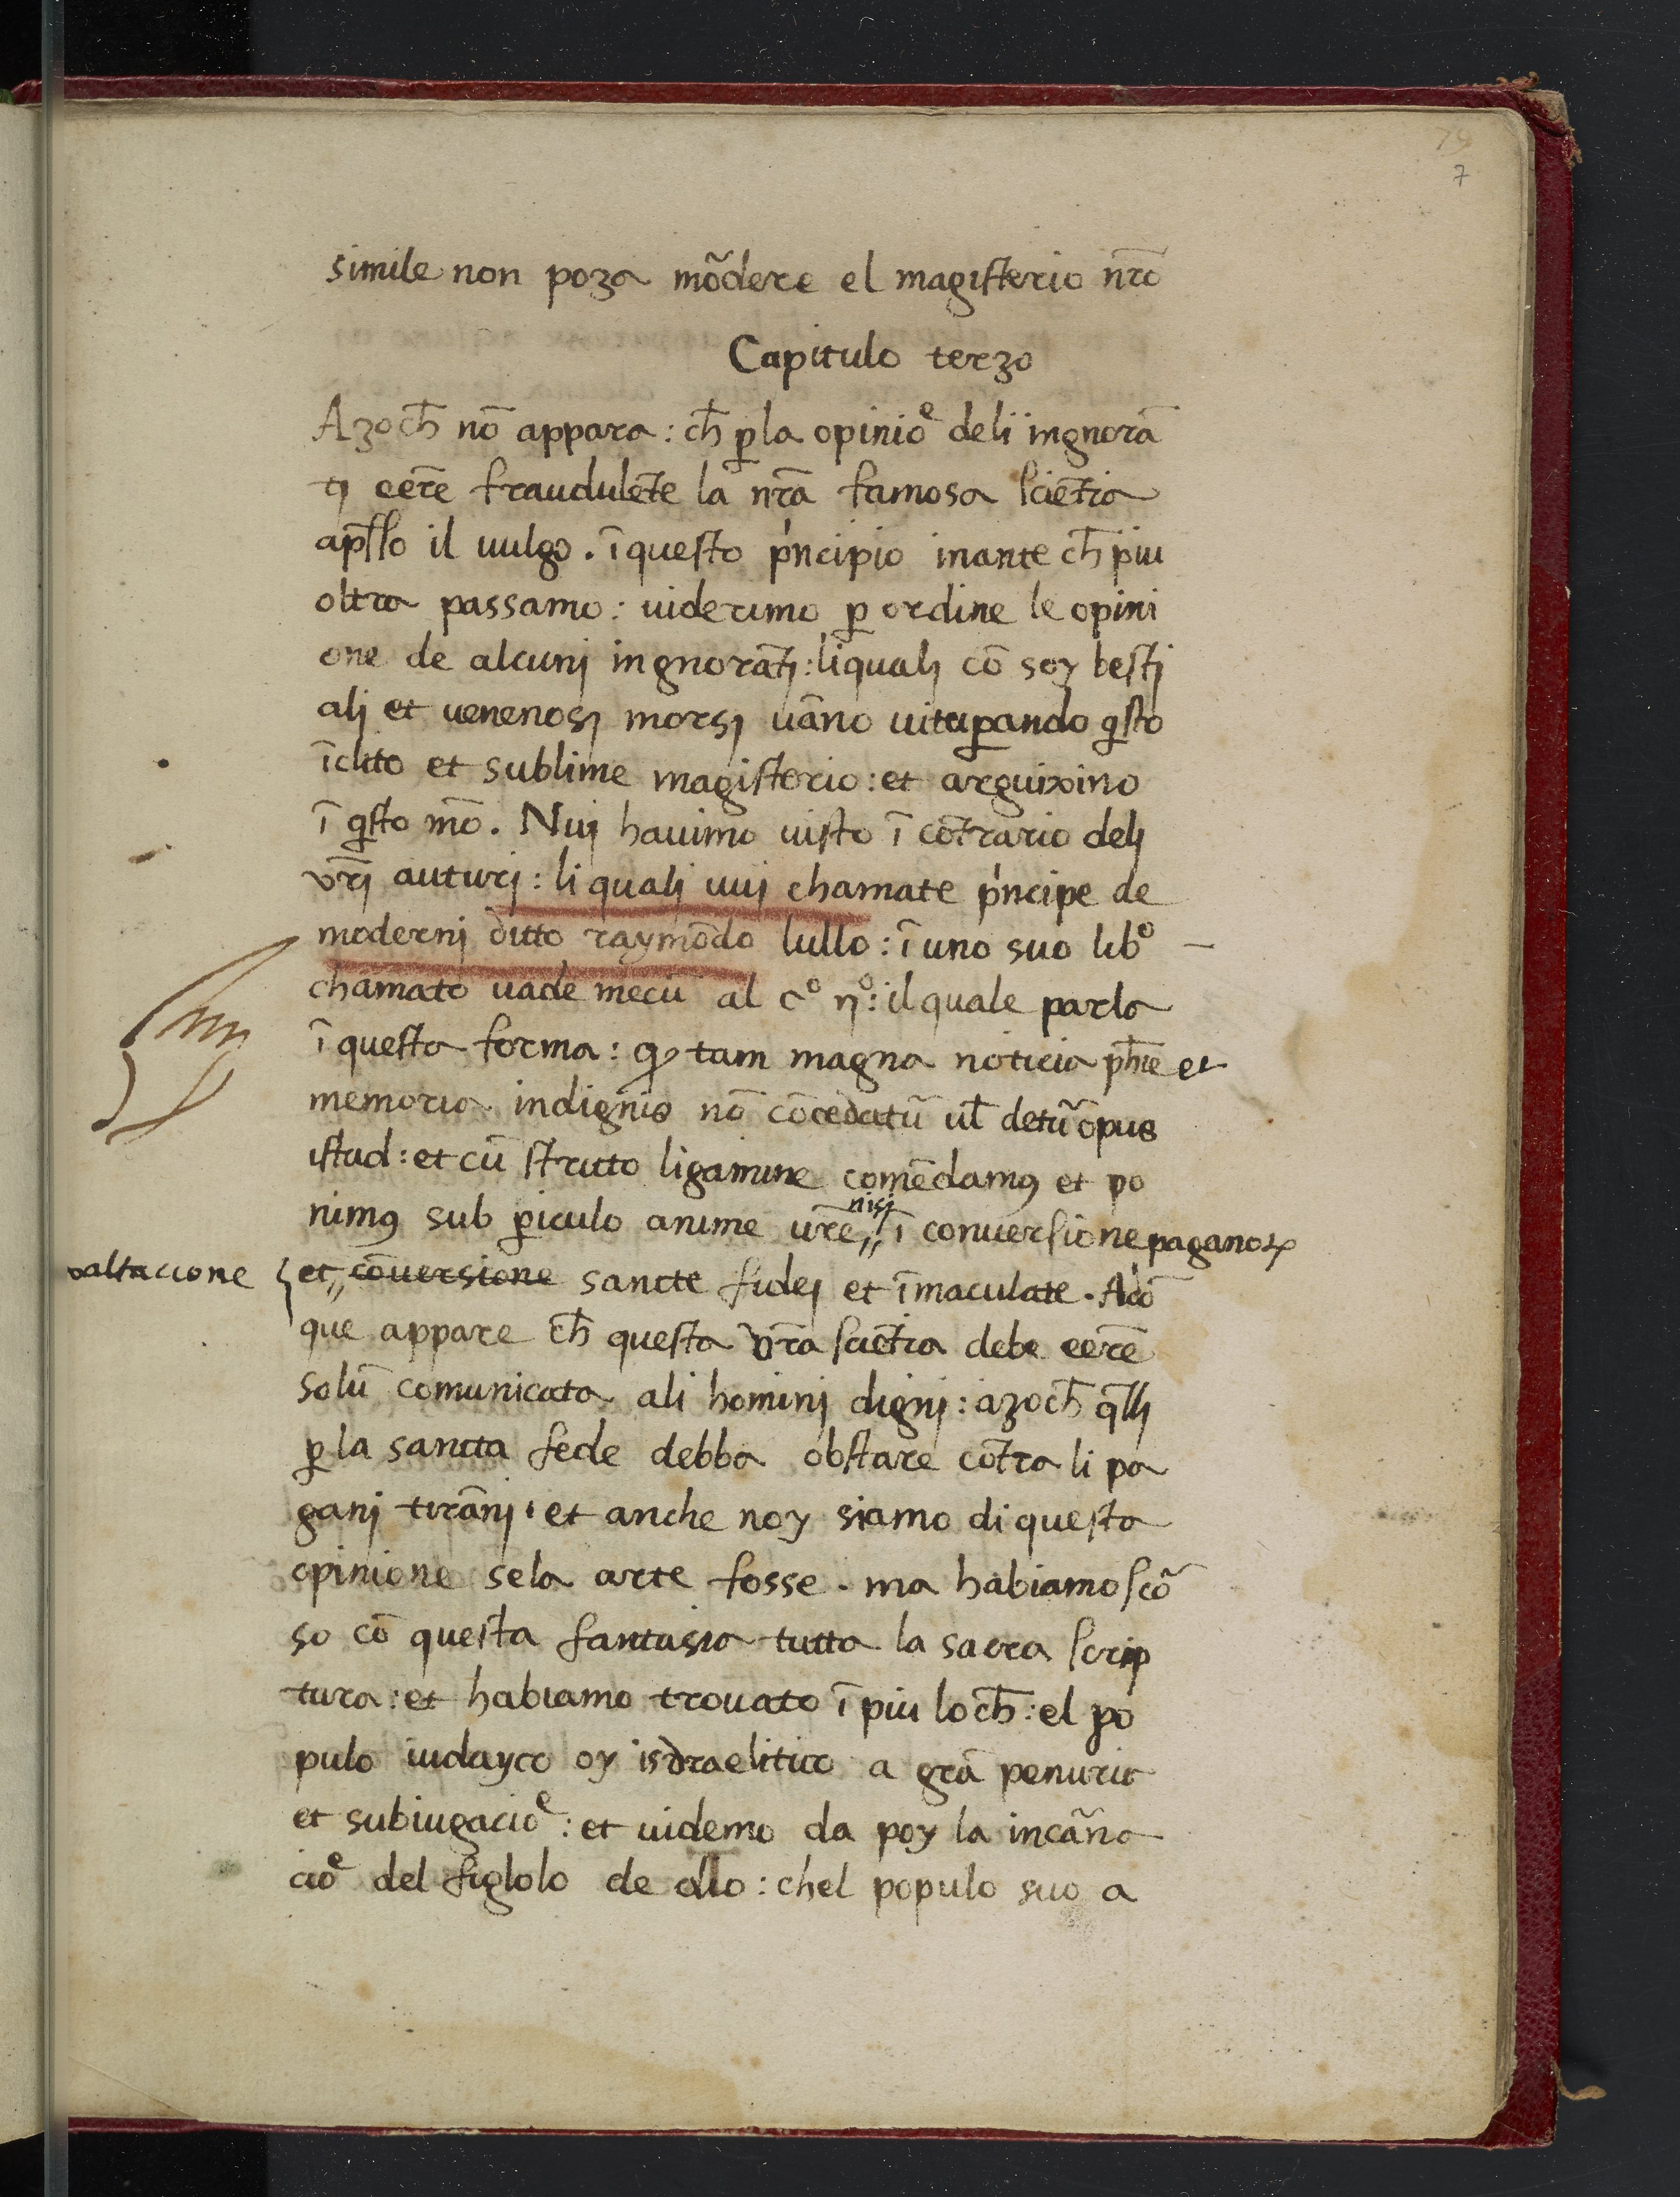 79
7
simile non poza mõdere el magisterio nr̃o
Capitulo terzo
Azoch̃ nõ appara : ch̃ p̱la opinioᵉ deli ingnorã
tj eer̃e fraudulẽte la nr̃a famosa sciẽtia
ap̃sso il uulgo . ĩ questo pʹncipio inante ch̃ piu
oltra passamo : uiderimo p̱ ordine le opini
one de alcunj ingnorãtj : liqualj cõ soy bestj
alj et uenenosj morsj uãno uitup̱ando q̃sto
ĩclito et sublime magisterio : et arguixino
ĩ q̃sto mõ . Nuj hauimo uisto ĩ cõtrario delj
vr̃j auturj : li qualj uuj chamate pʹncipe de
modernj ditto raymõdo lullo : ĩ uno suo libᵒ —
chamato uade mecũ al cᵒ nᵒ : il quale parla
ĩ questa forma : qꝫ tam magna noticia ph̃ie et
memoria indignis nõ cõcedatũ ul̃ detũ opus
istud : et cũ stritto ligamine comẽdamꝯ et po
nimꝯ sub p̱iculo anime ur̃e nisj ĩ conuersione paganoꝝ
xaltacione et cõuersione sancte fidej et ĩmaculate . Adõ
que appare ch̃ questa vr̃a sciẽtia debe eer̃e
solũ comunicata ali hominj dignj : azoch̃ q̃llj
p̱ la sancta fede debba obstare cõtra li pa
ganj tirãnj et anche noy siamo di questa
opinione sela arte fosse . ma habiamo scõ
so cõ questa fantasia tutta la sacra scrip
tura : et habiamo trouato ĩ piu loch̃ : el po
pulo iudayco oy isdraelitico a grã penuria
et subiugacioᵉ : et uidemo da poy la incãna
cioᵉ del figlolo de dio : chel populo suo a